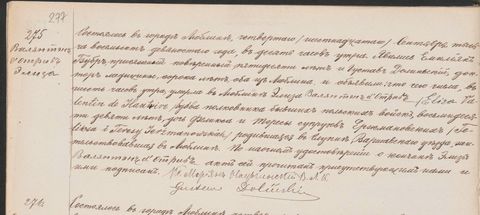 277
275
Валентинъ
д'Отривъ
Элиза
Состоялось въ городѣ Люблинѣ, четвертаго /шестнадцатаго/ Сентября тысяча
восемьсотъ девяностаго года, въ десять часовъ утра. Явились Емельянъ
присяжный повѣренный пятидесяти лѣтъ и Густавъ Долинскій, док-
торъ медицины, сорока лѣтъ, оба изъ Люблина, и объявили, что сего числа, въ
шесть часовъ утра, умерла въ Люблинѣ Элиза Валентинъ д'Отривъ /Eliza Va-
lentin de Hauterive/ вдова полковника бывшихъ польскихъ войскъ, восемьдесятъ
девять лѣтъ, дочь Феликса и Терезы супруговъ /Fe-
liksa i Teresy / родившаяся въ Варшавскаго уѣзда, жи-
тельствовавшая въ Люблинѣ. По настоящемъ удостовѣреніи о кончинѣ Элизы
Валентинъ д'Отривъ, актъ сей прочитанъ присутствующимъ нами и
ими подписанъ. Кс. В.А.К.
Gustaw Doliński
276
Состоялось въ городѣ Люблинѣ